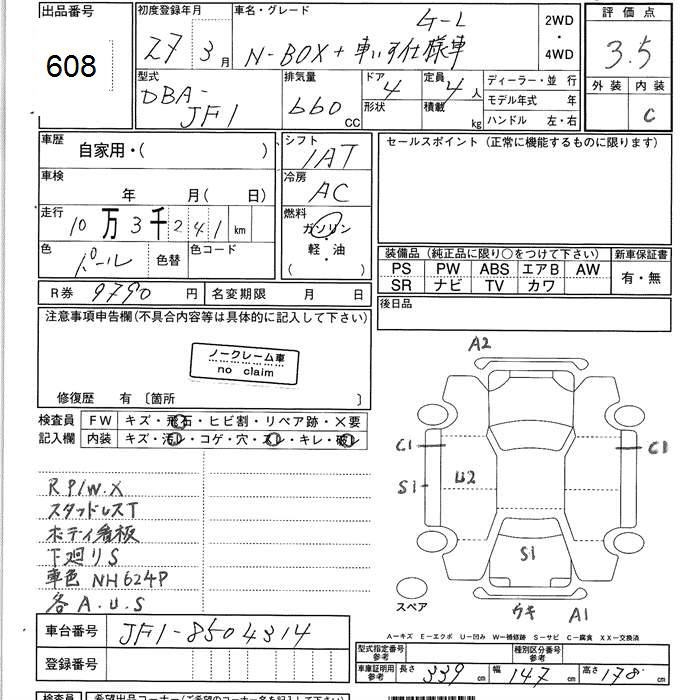 出品番号 初度登録年月 車名・グレード 2WD 評価点
608 27 3月 N-BOX+車いす仕様車 G-L ・ 4WD 3.5
型式 排気量 ドア 定員 ディーラー・並行 外装 内装
DBA- 660 CC 4 4人 モデル年式 年 C
JF1 形状 積載 kg ハンドル 左・右
車歴 自家用・( ) シフト セールスポイント (正常に機能するものに限ります)
1AT
車検 年 月( 日) 冷房 AC
走行 10万3千241km 燃料 ガソリン
色 パール 色替 色コード 軽・油
( )
装備品(純正品に限り○をつけて下さい) 新車保証書
PS PW ABS エアB AW 有・無
SR ナビ TV カワ
R券 9790円 名変期限 月 日 後日品
注意事項申告欄(不具合内容等は具体的に記入して下さい)
ノークレーム車
no claim
修復歴 有 〔箇所 〕
検査員 FW キズ・飛石・ヒビ割・リペア跡・×要
記入欄 内装 キズ・汚レ・コゲ・穴・スレ・キレ・破レ
A2
C1 C1
S1 U2
S1
スペア
ウキ A1
R P/W.X
スタッドレスT
ボディ看板
下廻りS
車色 NH624P
各A.U.S
A－キズ E－エクボ U－凹み W－補修跡 S－サビ C－腐食 XX－交換済
車台番号 JF1-8504314
登録番号
型式指定番号 参考 種別区分番号 参考
車庫証明用 参考 長さ 339cm 幅 147cm 高さ 178cm
検査員 希望出品コーナー(ご希望のコーナー名を記入して下さい)